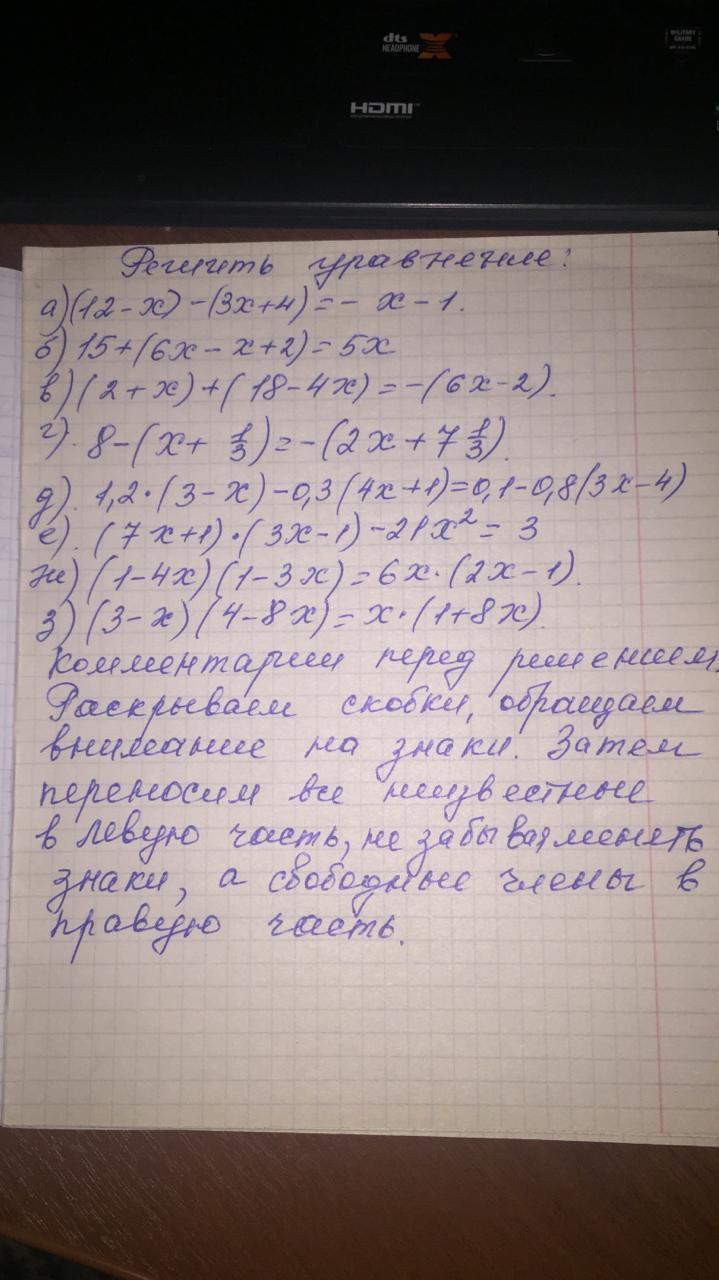 dts
HEADPHONE X
MILITARY
GRADE
HDMI
Решить уравнение:
а) (12 - x) - (3x + 4) = - x - 1.
б) 15 + (6x - x + 2) = 5x
в) (2 + x) + (18 - 4x) = -(6x - 2).
г). 8 - (x + 1/3) = -(2x + 7 1/3).
д). 1,2 · (3 - x) - 0,3 (4x + 1) = 0,1 - 0,8 (3x - 4)
е). (7x + 1) · (3x - 1) - 21x² = 3
ж) (1 - 4x) (1 - 3x) = 6x · (2x - 1).
з) (3 - x) (4 - 8x) = x · (1 + 8x).
Комментарии перед решением.
Раскрываем скобки, обращаем
внимание на знаки. Затем
переносим все неизвестные
в левую часть, не забывая менять
знаки, а свободные члены в
правую часть.